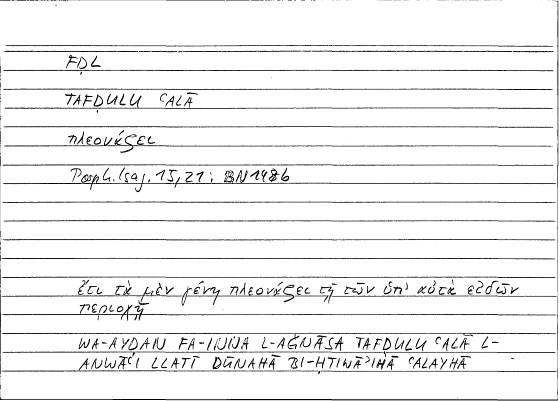 FḌL
TAFḌULU ʿALĀ
πλεονάζει
Porph. Isag. 15,21: BN 148b
ἔτι τὰ μὲν γένη πλεονάζει τῇ τῶν ὑπ' αὐτὰ εἰδῶν
περιοχῇ
WA-AYḌAN FA-INNA L-AǦNĀSA TAFḌULU ʿALĀ L-
ANWĀʿI LLATĪ DŪNAHĀ BI-ḤTIWĀʾIHĀ ʿALAYHĀ